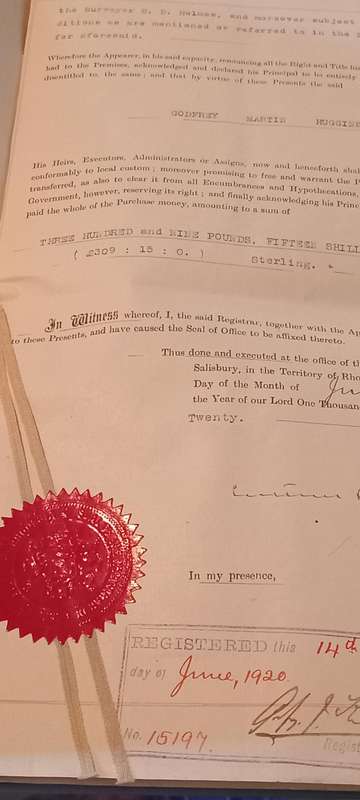 the Surveyor C. D. Helmes, and moreover subject
ditions as are mentioned or referred to in the
for aforesaid.
Wherefore the Appearer, in his said capacity, renouncing all the Right and Title his
had to the Premises, acknowledged and declared his Principal to be entirely
disentitled to, the same; and that by virtue of these Presents the said
GODFREY MARTIN HUGGIN
His Heirs, Executors, Administrators or Assigns, now and henceforth shal
conformably to local custom; moreover promising to free and warrant the P
transferred, as also to clear it from all Encumbrances and Hypothecations,
Government, however, reserving its right; and finally acknowledging his Princ
paid the whole of the Purchase money, amounting to a sum of
THREE HUNDRED and NINE POUNDS, FIFTEEN SHILL
( £309 : 15 : 0. ) Sterling.
In Witness whereof, I, the said Registrar, together with the Ap
to these Presents, and have caused the Seal of Office to be affixed thereto.
Thus done and executed at the office of th
Salisbury, in the Territory of Rho
Day of the Month of Ju
the Year of our Lord One Thousan
Twenty.
In my presence,
REGISTERED this 14th
day of June, 1920
No. 15197.
Regist